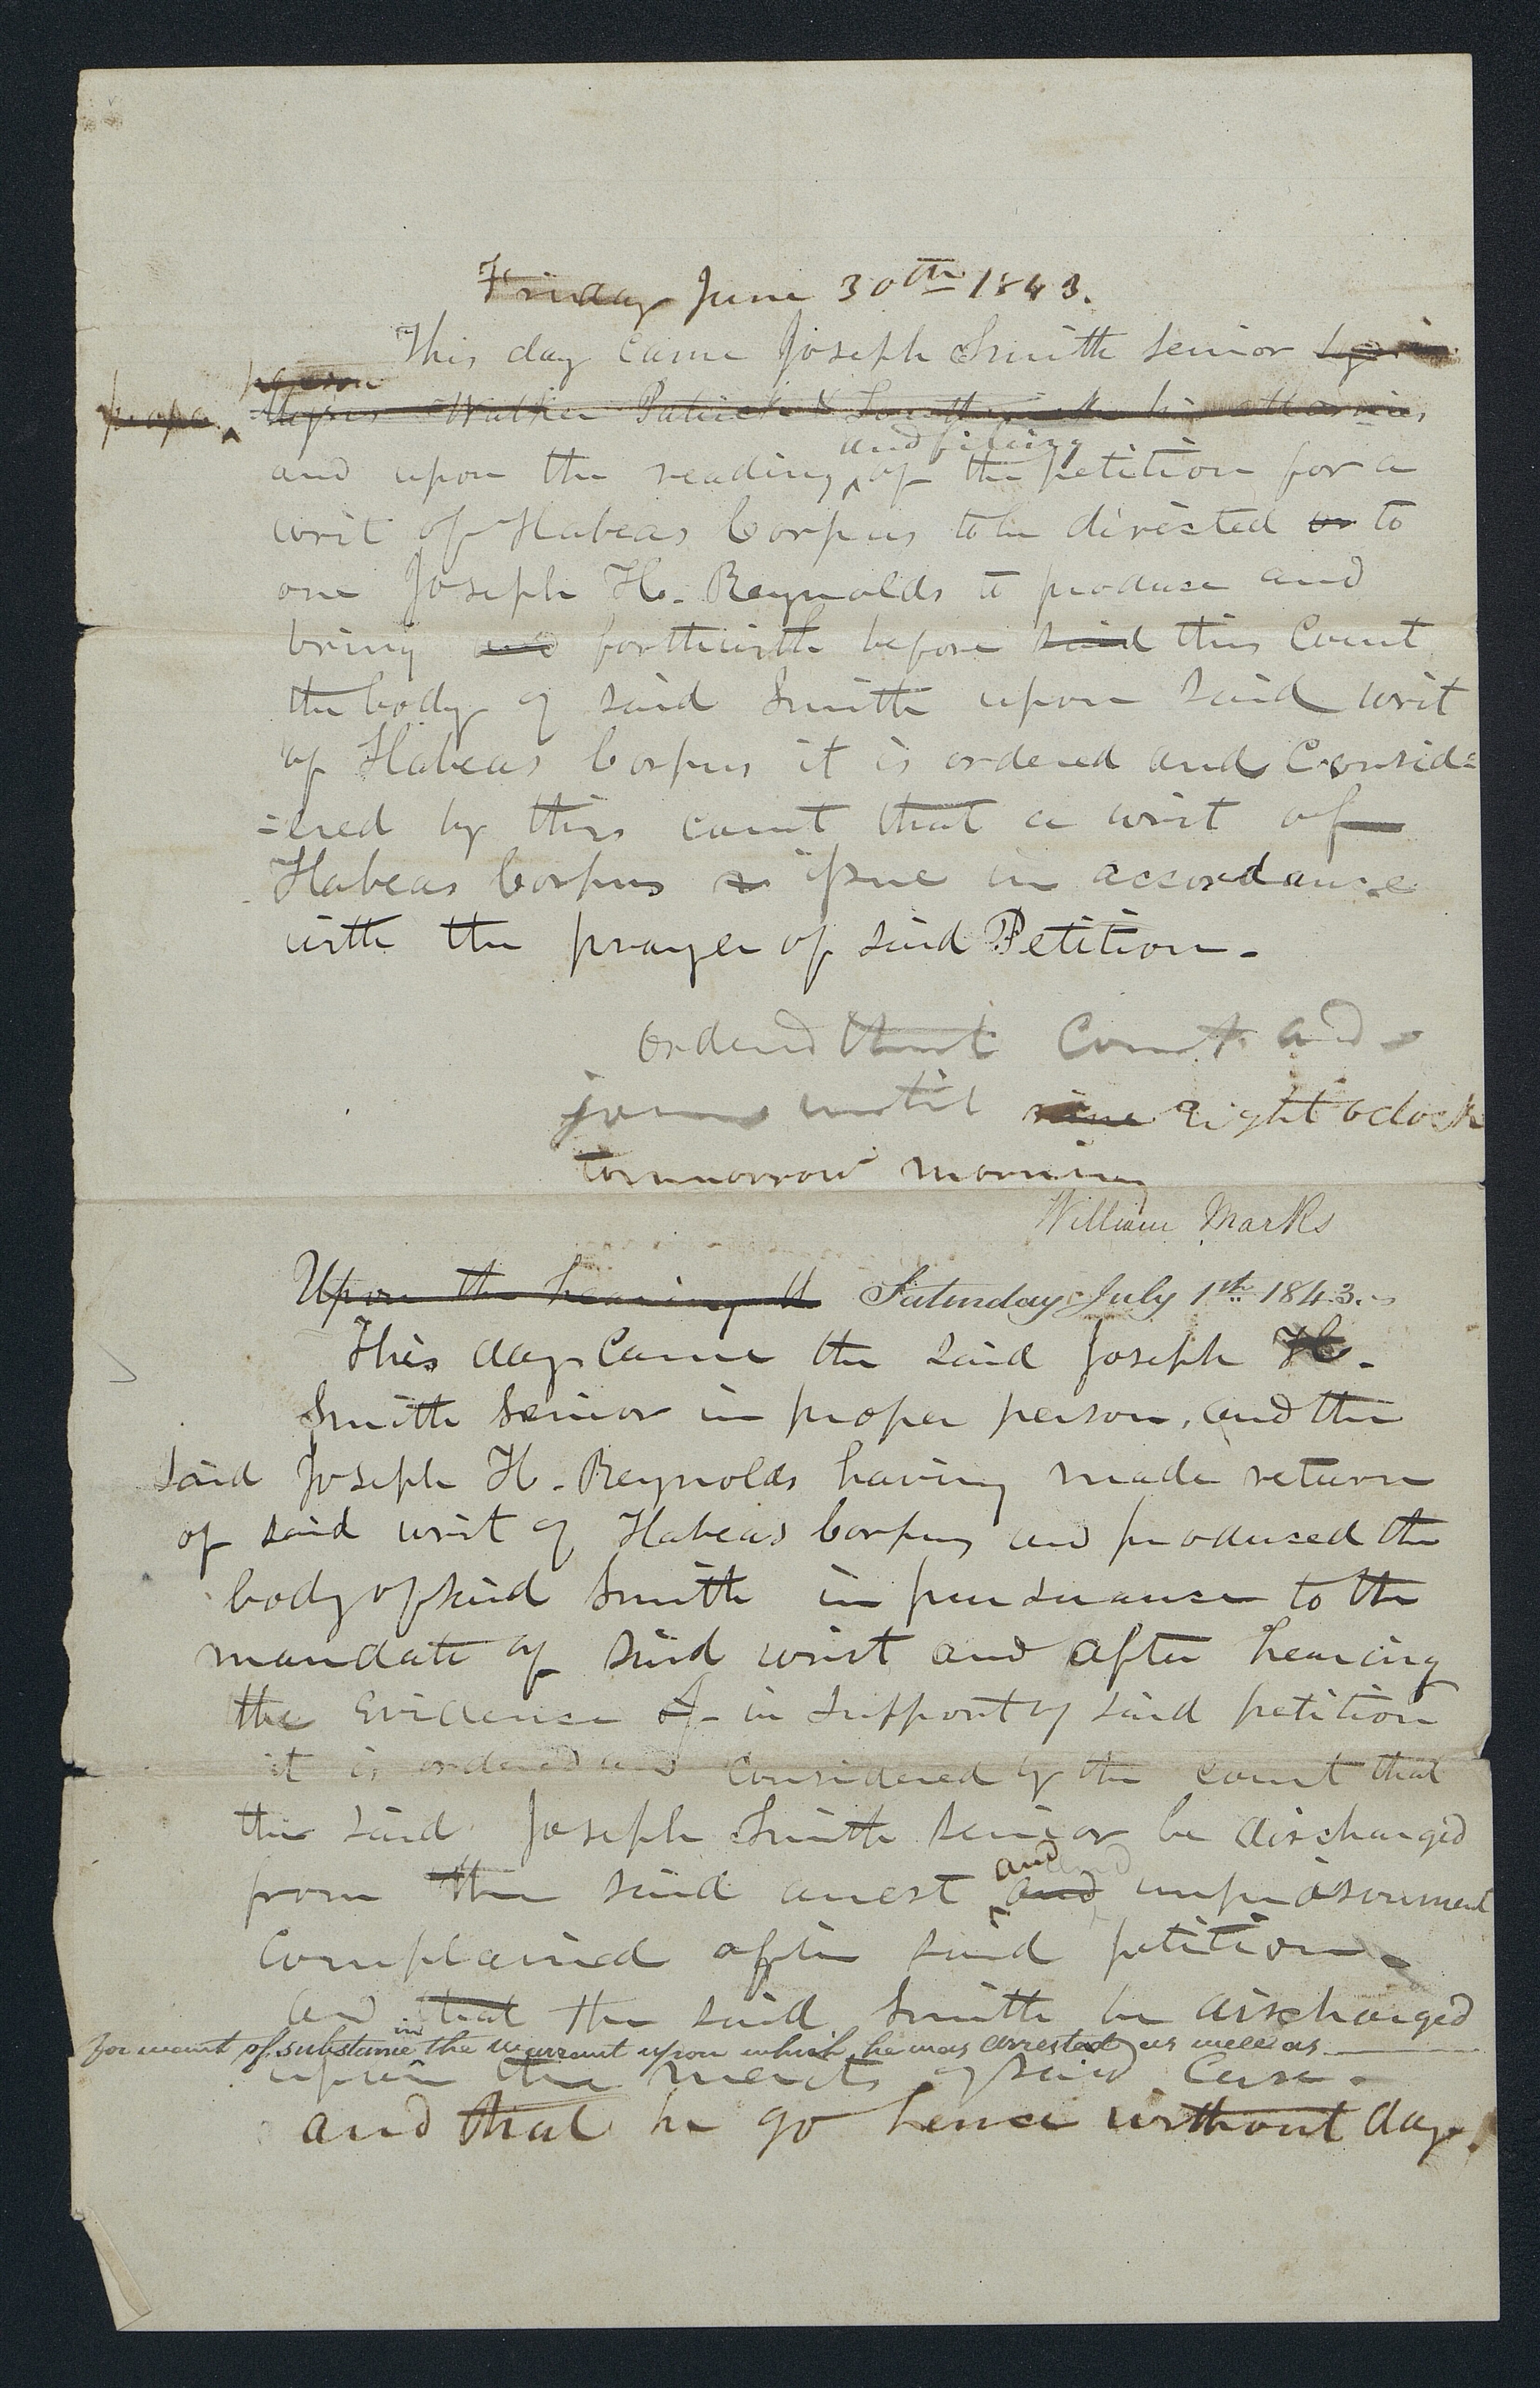 Friday June 30th 1843.
This day came Joseph Smith senior by in
proper person
Messrs Walker Patrick & Southwick his attornies,
and upon the reading and filing of the petition for a
writ of Habeas Corpus to be directed or to
one Joseph H. Reynolds to produce and
bring and forthwith before said this Court
the body of said Smith upon said writ
of Habeas Corpus it is ordered and Consid=
=ered by this court that a writ of
Habeas Corpus issue in accordance
with the prayer of said Petition.
Ordered that Court ad-
journ until nine eight oclock
tommorrow morning
William Marks
Upon the hearing Saturday July 1st 1843.
This day Came the said Joseph H.
Smith Senior in proper person, and the
said Joseph H. Reynolds having made return
of said writ of Habeas Corpus and produced the
body of said Smith in pursuance to the
mandate of said writ and after hearing
the evidence of in support of said petition
it is ordered and considered by the court that
the said Joseph Smith senior be discharged
from the said arrest and and imprisonment
complained of in said petition.
and that the said Smith be discharged
for want of substance in the warrant upon which he was arrested as well as
upon the merits of said case.
and that he go hence without day.